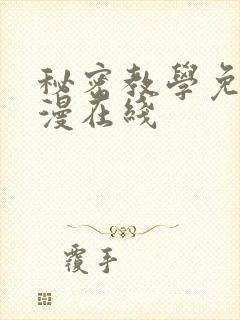 秘密教學免
漫在綫
覆手